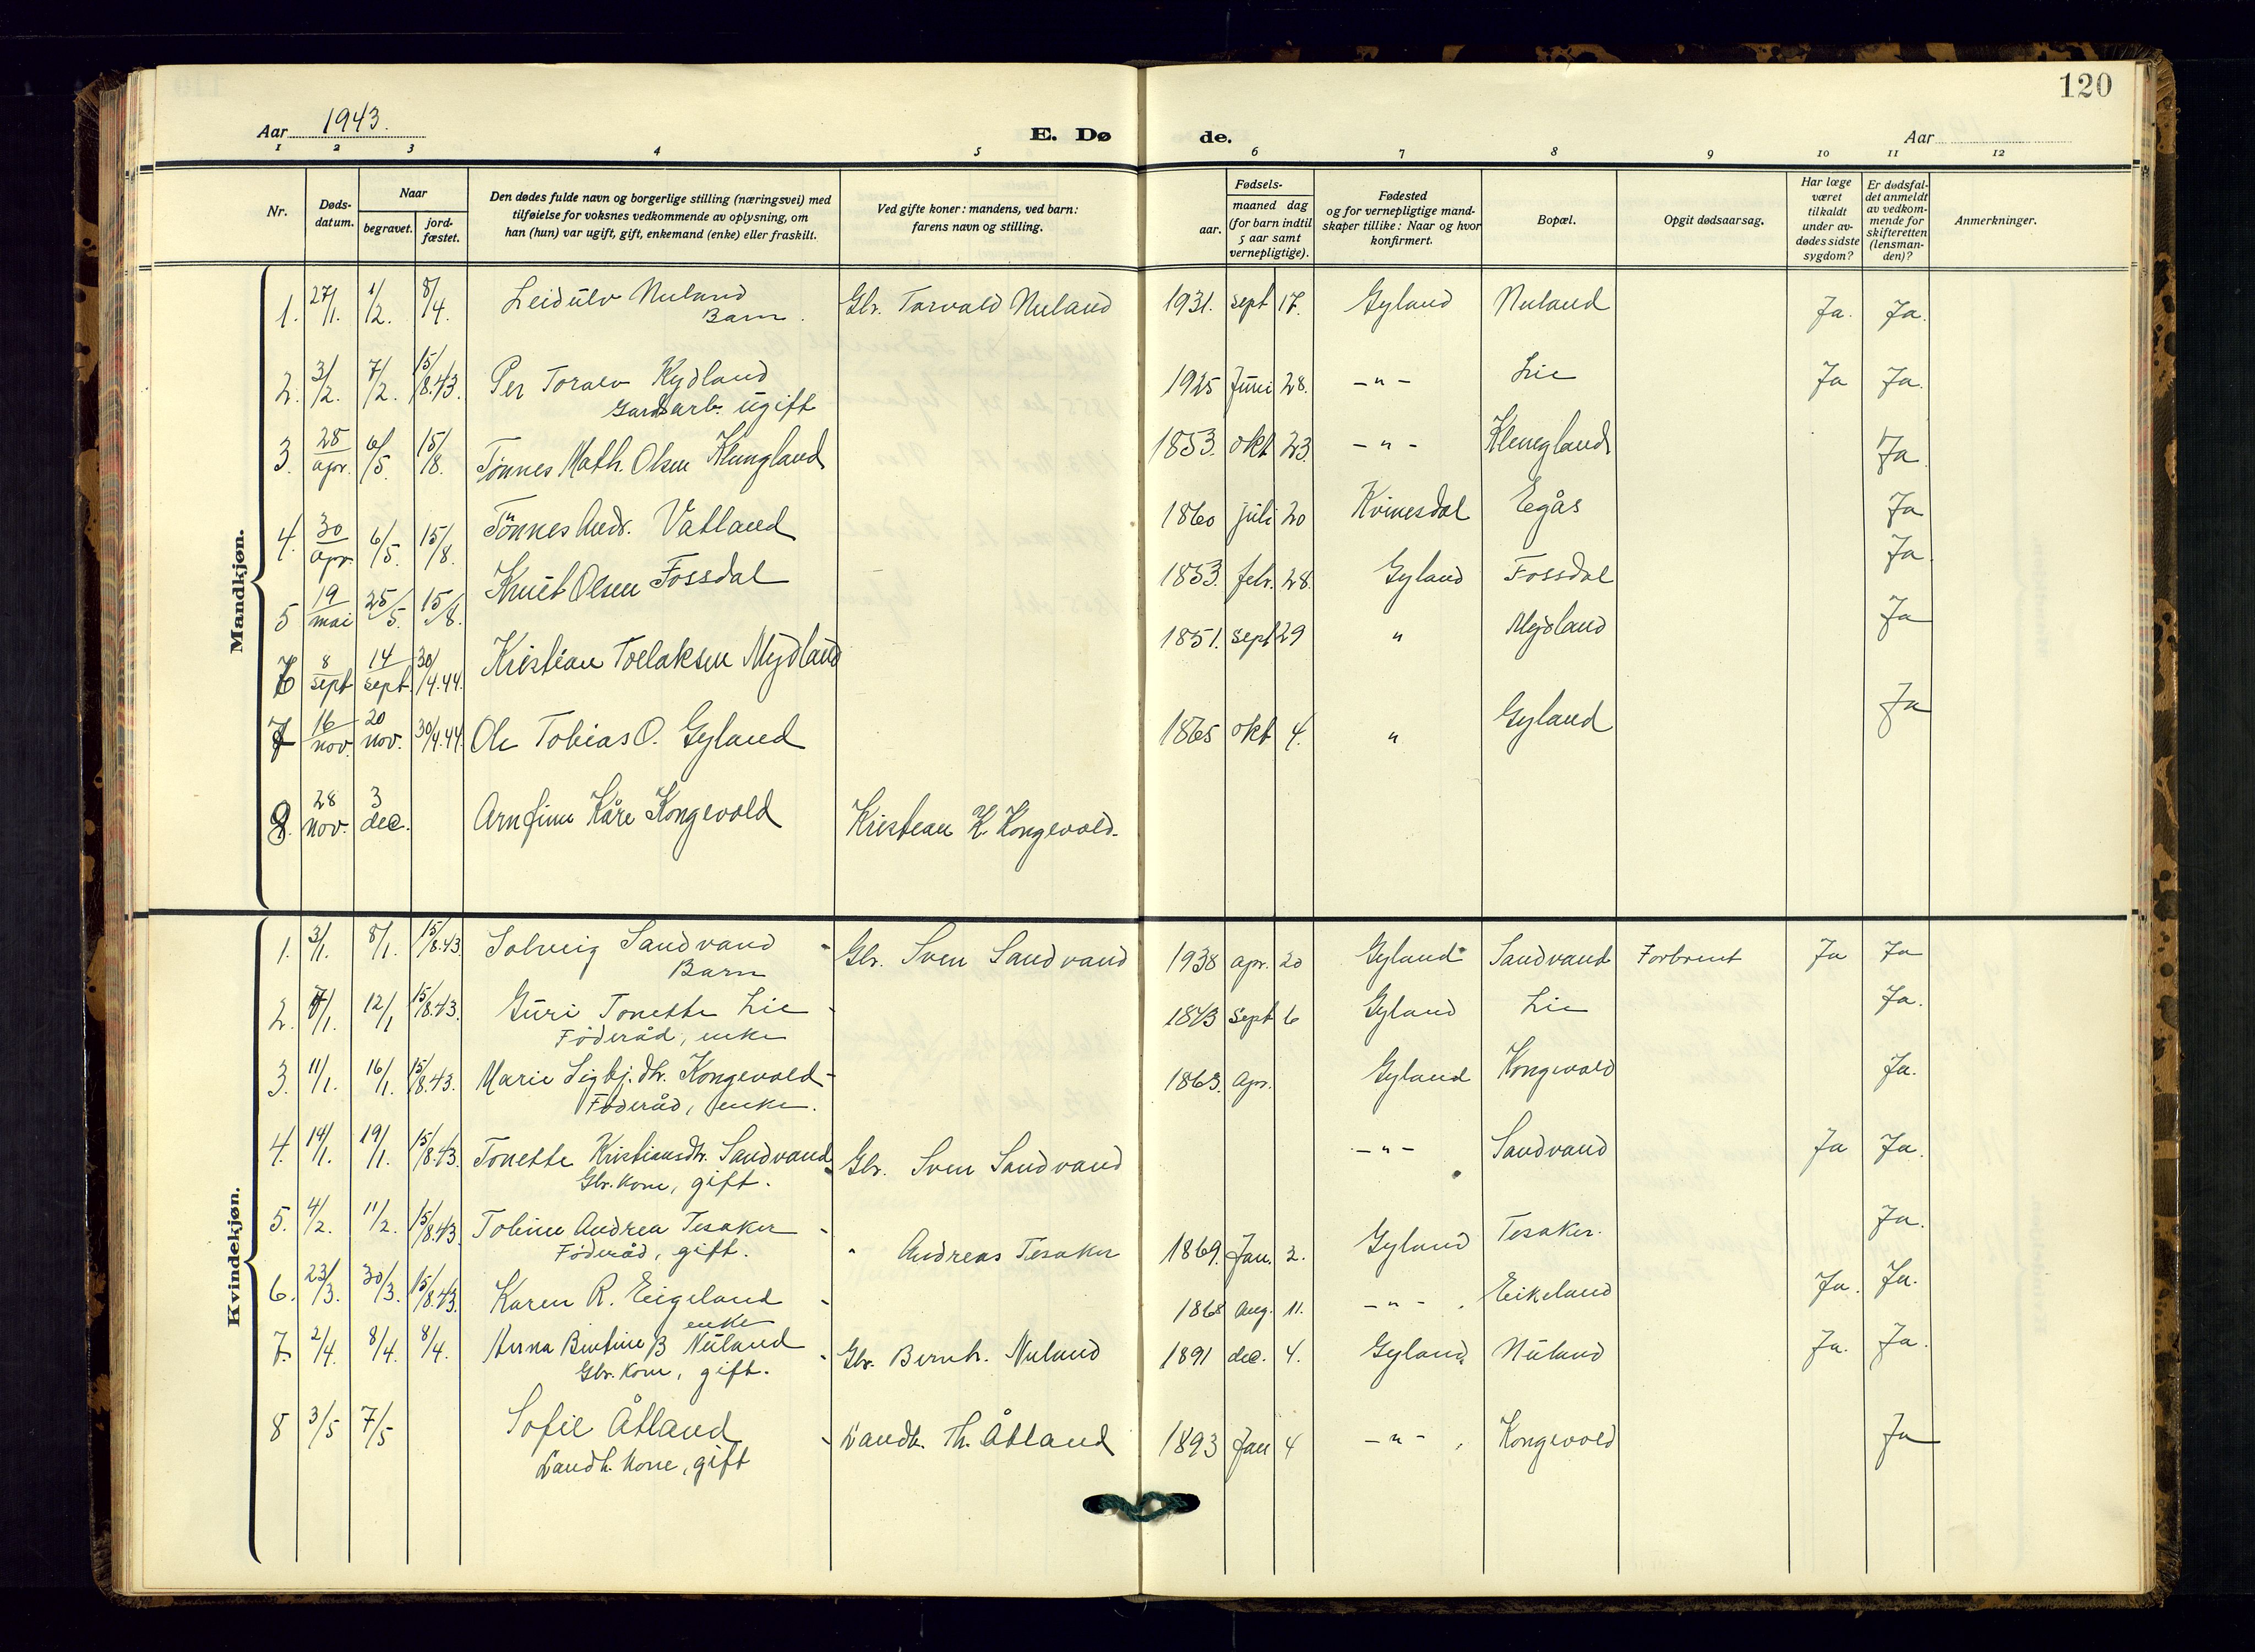 120
Aar 1943.
E. Dø de.
Aar
1 2 3 4 5 6 7 8 9 10 11 12
Nr.
Døds-
datum.
Naar
begravet.
jord-
fæstet.
Den dødes fulde navn og borgerlige stilling (næringsvei) med
tilføielse for voksnes vedkommende av oplysning, om
han (hun) var ugift, gift, enkemand (enke) eller fraskilt.
Ved gifte koner: mandens, ved barn:
farens navn og stilling.
Fødsels-
aar.
maaned dag
(for barn indtil
5 aar samt
vernepligtige).
Fødested
og for vernepligtige mand-
skaper tillike: Naar og hvor
konfirmert.
Bopæl.
Opgit dødsaarsag.
Har læge
været
tilkaldt
under av-
dødes sidste
sygdom?
Er dødsfal-
det anmeldt
av vedkom-
mende for
skifteretten
(lensman-
den)?
Anmerkninger.
Mandkjøn.
1. 27/1. 1/2. 8/4. Leidulv Nuland Gbr. Torvald Nuland 1931. sept 17. Gyland Nuland Ja. Ja.
Barn.
2. 3/2. 7/2. 15/8.43. Per Toralv Kydland 1925 Juni 28. -"- Lie Ja Ja.
Gardsarb. ugift
3. 28/apr. 6/5. 15/8. Tønnes Math. Olsen Klungland 1853. okt 23. -"- Klungland Ja.
4. 30/apr. 6/5. 15/8. Tønnes Andr. Vatland 1860 juli 20 Kvinesdal Egås Ja
5 19/mai 25/5. 15/8. Knut Olsen Fossdal 1853. febr. 28. Gyland Fossdal Ja.
6 8/sept 14/sept. 30/4.44. Kristian Tollaksen Mydland 1851. sept 29 " Mydland Ja
7 16/nov. 20 nov. 30/4.44. Ole Tobias O. Gyland 1865 okt 4. " Gyland Ja
8. 28 nov. 3 dec. Arnfinn Kåre Kongevold Kristian K. Kongevold.
Kvindekjøn.
1. 3/1. 8/1. 15/8.43. Solveig Sandvand - Gbr. Sven Sandvand 1938 apr. 20 Gyland Sandvand Forbrent Ja Ja
Barn
2. 7/1. 12/1 15/8.43. Guri Tonette Lie - 1843 sept 6 Gyland Lie Ja.
Føderåd, enke
3. 11/1. 16/1. 15/8.43. Marie Sigbj.dtr. Kongevold - 1863. apr. Gyland Kongevold Ja.
Føderåd, enke.
4. 14/1. 19/1. 15/8.43. Tonette Kristiansdtr. Sandvand Gbr. Sven Sandvand -"- Sandvand Ja Ja.
Gbr. kone, gift.
5. 4/2. 11/2. 15/8.43. Tobine Andrea Tesaker - " Andreas Tesaker 1869. Jan. 2. Gyland Tesaker. Ja.
Føderåd, gift.
6. 23/3. 30/3. 15/8.43. Karen R. Eigeland - 1868 aug. 11. -"- Eikeland Ja. Ja.
enke
7. 2/4. 8/4. 8/4. Anna Bentine B Nuland - Gbr. Bernh. Nuland 1891 dec. 4. Gyland Nuland Ja. Ja.
Gbr. kone, gift.
8 3/5 7/5 Sofie Åtland - Landh. Th. Åtland 1893 Jan 4 -"- Kongevold Ja
Landh. kone, gift